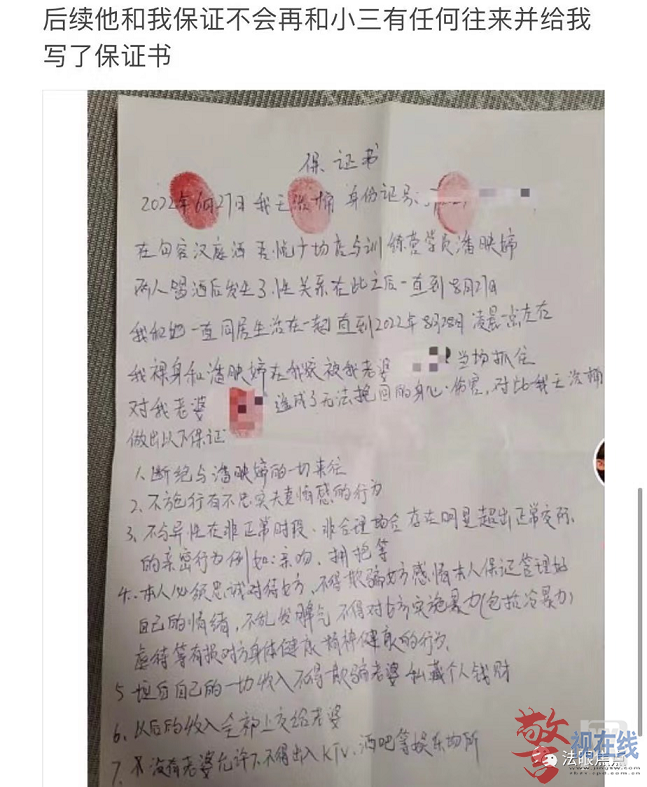 后续他和我保证不会再和小三有任何往来并给我
写了保证书
保证书
2022年6月27日我王治 身份证号:
在句容汉庭酒 广场店与训练营学员潘映婷
两人喝酒后发生了性关系在此之后一直到8月27日
我和她一直同居生活在一起直到2022年8月28日凌晨一点左右
我裸身和潘映婷在我家被我老婆 当场抓住
对我老婆 造成了无法挽回的身心伤害,对此我王治
做出以下保证
1、断绝与潘映婷的一切来往
2、不 行有不忠实夫妻情感的行为
3、不与异性在非正常时段、非合理场合存在明显超出正常交际
的亲密行为例如:亲吻、拥抱等
4、本人必须忠诚对待对方,不得欺骗对方感情本人保证管理好
自己的情绪,不乱发脾气不得对对方实施暴力(包括冷暴力)
虐待等有损对方身体健康精神健康的行为,
5 坦白自己的一切收入不得欺骗老婆私藏个人钱财
6、以后的收入全部上交给老婆
7、 没有老婆允许下不得出入KTV、酒吧等娱乐场所
警视在线
法眼焦点